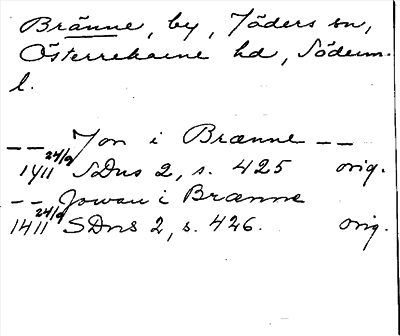 Bränne, by, Jäders sn,
Österrekarne hd, Söderm.
l.
-- Jon i Brænne --
1411 24/9 SDns 2, s. 425 orig.
-- Jowan i Brænne
1411 24/9 SDns 2, s. 426. orig.